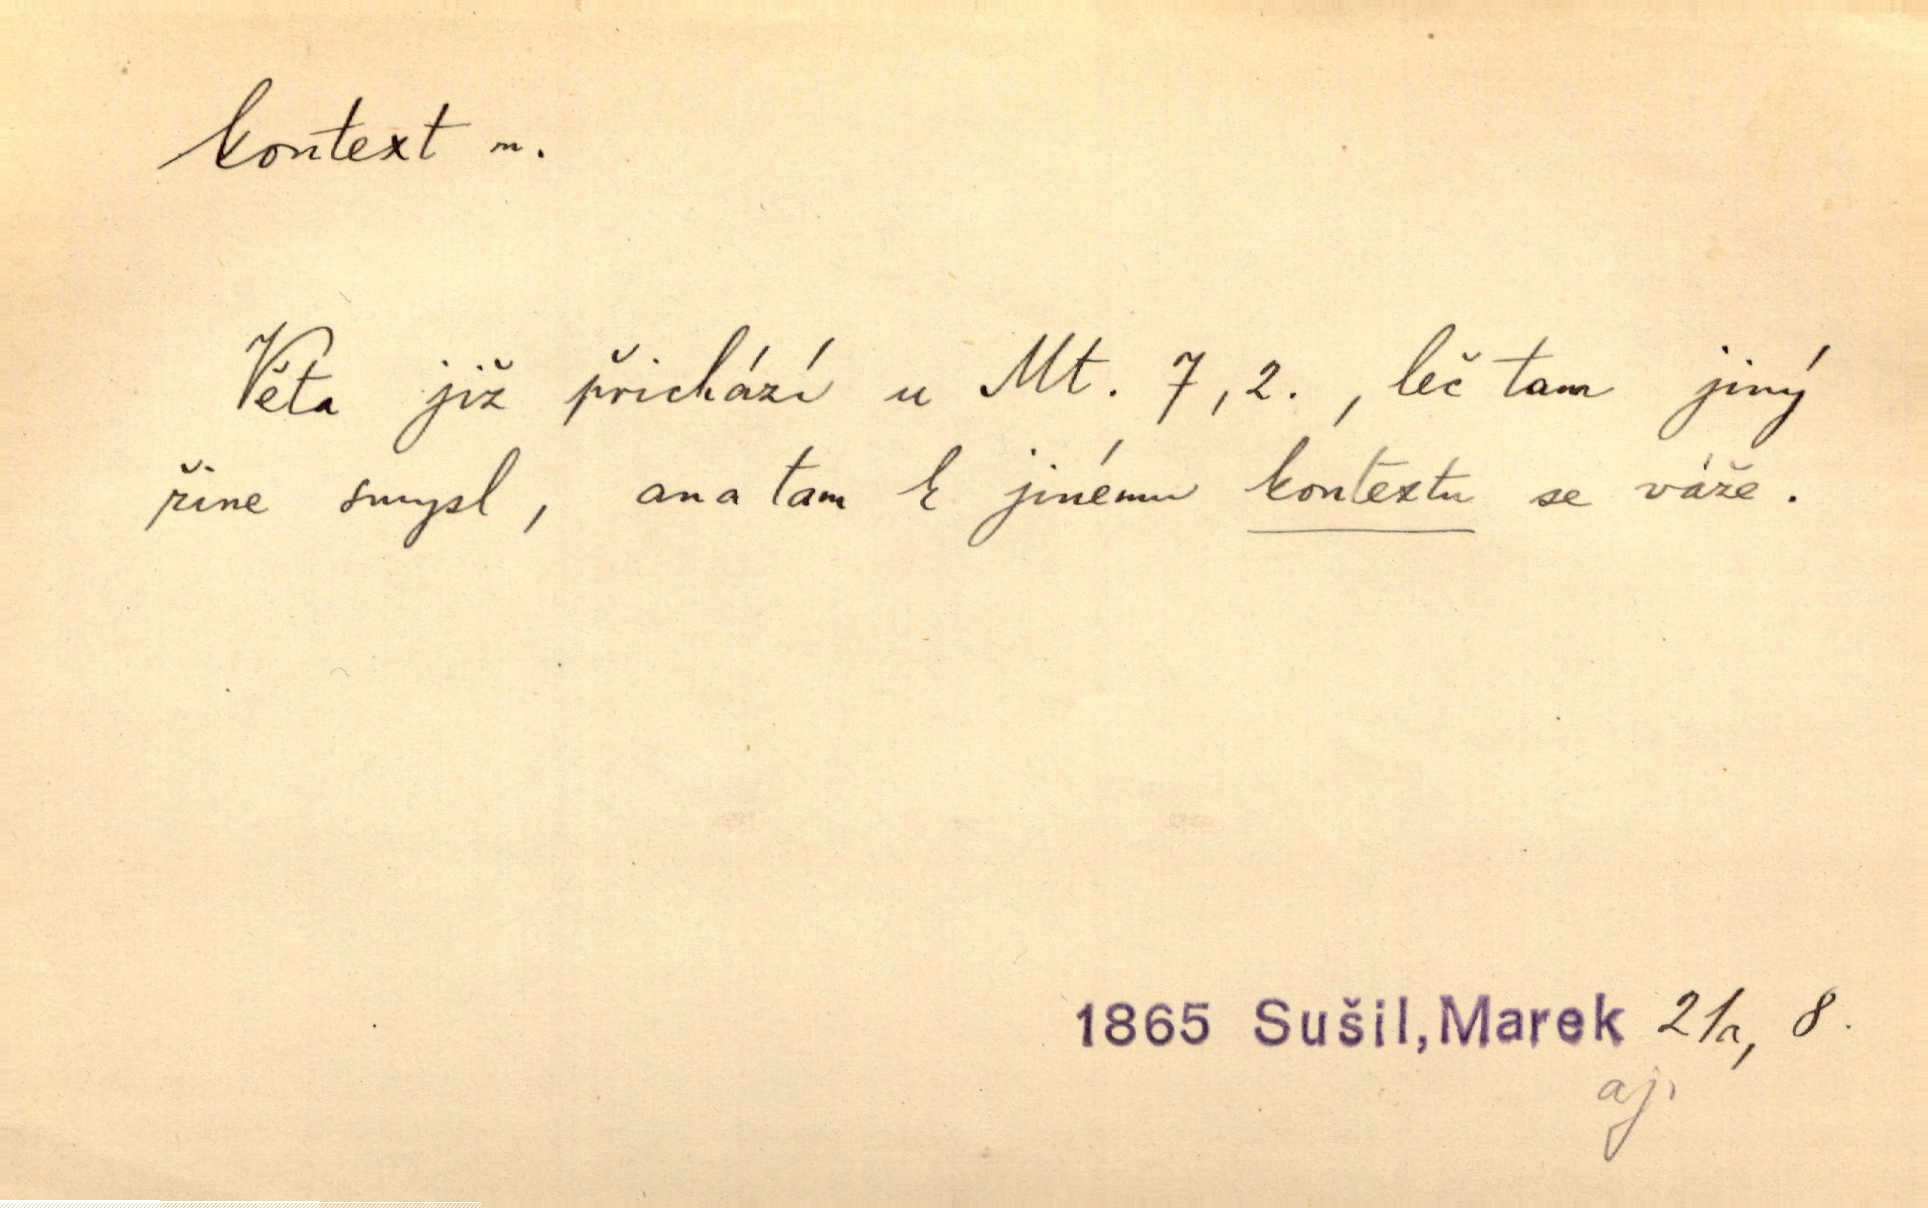 kontext m.
Věta již přichází u Mt. 7,2., leč tam jiný
říne smysl, ana tam k jinému kontextu se váže.
1865 Sušil, Marek 21a, 8.
aj.